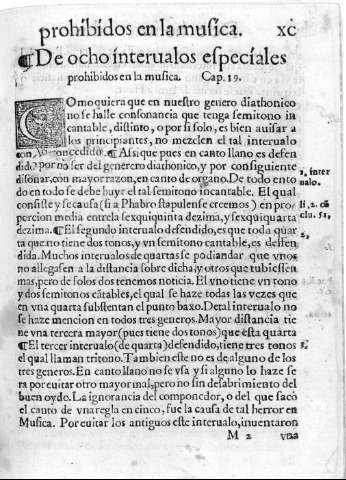 prohibidos en la musica. xc
¶De ocho interualos especiales
prohibidos en la musica. Cap. 19.
COmo quiera que en nuestro genero diathonico
no se halle consonancia que tenga semitono in
cantable, distinto, o por si solo, es bien auisar a
los principiantes, no mezclen el tal interualo
con lo concedido. ¶Assi que pues en canto llano es defen
dido por no ser del genero diathonico, y por consiguiente
disonar, con mayor razon, en canto de organo. De todo ento
do en todo se deue huyr el tal semitono incantable. El qual
consiste y se causa (si a Phabro stapulense creemos) en pro-
porcion media entre la sexquiquinta dezima, y sexquiquarta
dezima. ¶El segundo interualo defendido, es que toda quar
ta que no tiene dos tonos, y vn semitono cantable, es deffen
dida. Muchos interualos de quartas se podian dar que vnos
no allegassen a la distancia sobre dicha, y otros que tubiessen
mas, pero de solos dos tenemos noticia. El vno tiene vn tono
y dos semitonos cãtables, el qual se haze todas las vezes que
en vna quarta substentan el punto baxo. Detal interualo no
se haze mencion en todos tres generos. Mayor distancia tie
ne vna tercera mayor (pues tiene dos tonos) que esta quarta
¶El tercer interualo (de quarta) defendido, tiene tres tonos
el qual llaman tritono. Tambien este no es de alguno de los
tres generos. En canto llano no se vsa y si alguno lo haze se
ra por euitar otro mayor mal, pero no sin desabrimiento del
buen oydo. La ignorancia del componedor, o del que sacò
el canto de vna regla en cinco, fue la causa de tal herror en
Musica. Por euitar los antiguos este interualo, inuentaron
M 2 vna
1, inter
ualo.
li, 2. cõ
clu. 51,
2,
3,